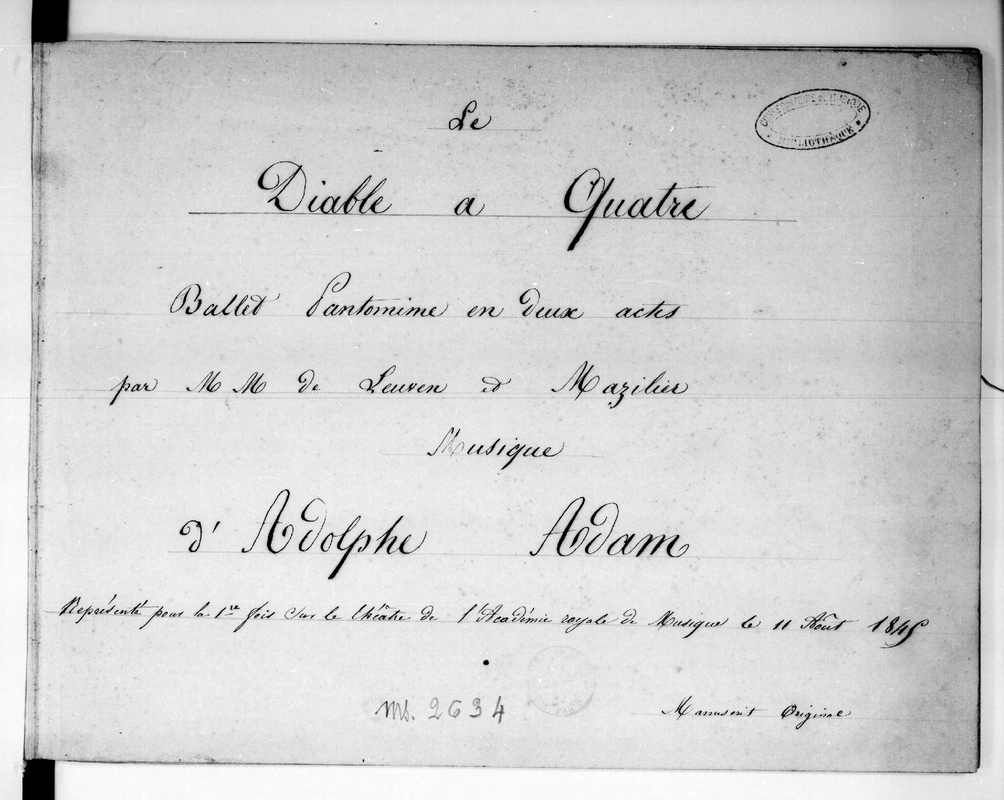 Le
CONSERVATOIRE DE MUSIQUE
BIBLIOTHÈQUE
Diable a Quatre
Ballet Pantomime en deux actes
par MM de Leuven et Mazilier
Musique
d'Adolphe Adam
Représenté pour la 1re fois sur le théatre de l'Académie royale de Musique le 11 Août 1845
ms. 2634
Manuscrit Original